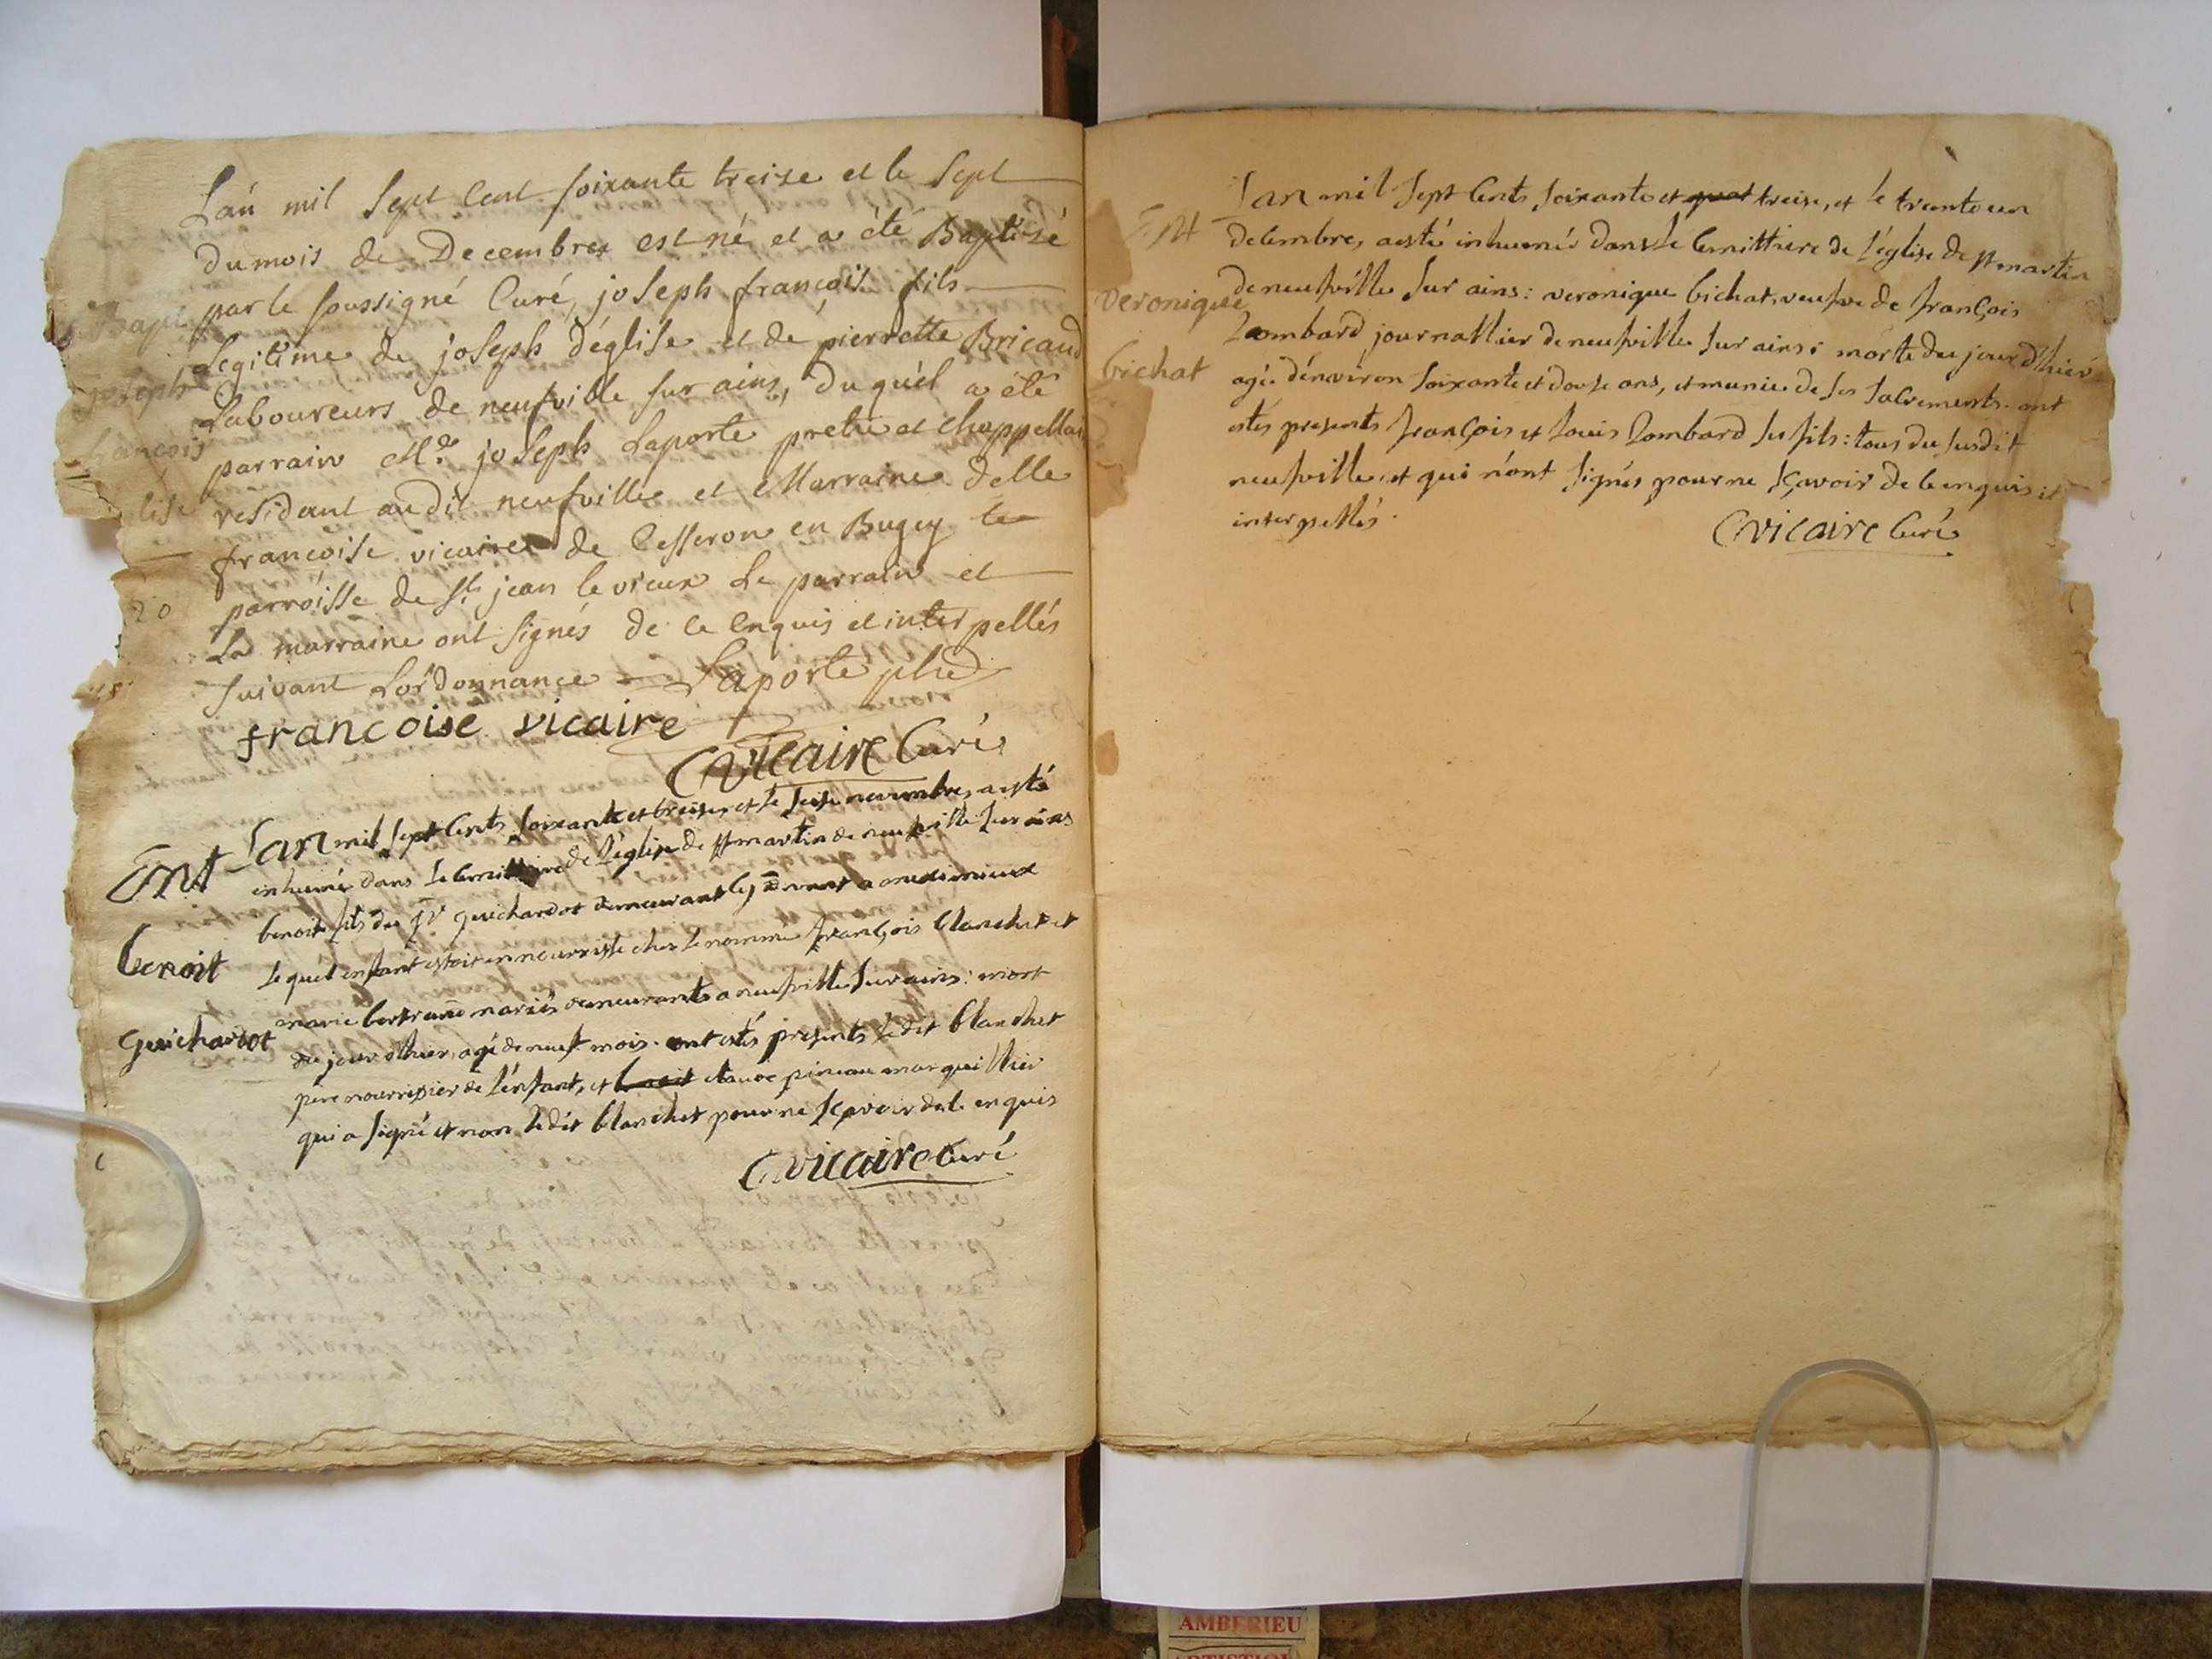 L'an mil Sept Cent soixante treize et le Sept
du mois de Decembre est né et a été Baptisé
Bapt
par le soussigné Curé, joseph françois fils
Legitime de joseph d'église et de pierrette Bricaud
joseph
Laboureurs de neufville sur ains, duquel a été
françois
parrain Mre joseph Laporte pretre et chappellain
lise
residant audit neufville et Marraine delle
francoise vicaire de Cesseron en Bugey
parroisse de St jean le vieux Le parrain et
La marraine ont signés de ce enquis et interpellés
suivant L'ordonnance Laporte
francoise vicaire
Cvicaire Curé
Ent
L'an mil sept Cents soixante et treise, et le seise novembre, a esté
inhumé dans le de l'église de st martin de neufville sur ains
benoit fils du guichardot demeurant
Benoit
lequel enfant estoit en nourrisse ches le nommé françois blanchet et
marie bertrand mariés demeurants a neufville sur ains: mort
guichardot
du jour d'hier, agé de neuf mois. ont estés presents ledit blanchet
pere nourrisier de l'enfant, et claude pineau marguillier
qui a signé et non ledit blanchet pour ne sçavoir de ce enquis
Cvicaire curé
Ent
L'an mil sept Cents soixante et quat treise, et le trente un
decembre, a esté inhumée dans le Cemittiere de l'église de st martin
veronique
de neufville sur ains: veronique bichat, veufve de françois
Lombard journallier de neufville sur ains: morte du jour d'hier
bichat
agée d'énviron soixante et douse ans, et munie de ses sacrements. ont
estés presents françois et louis Lombard ses fils: tous du susdit
neufville, et qui n'ont signés pour ne sçavoir de ce enquis et
interpellés.
Cvicaire Curé
AMBERIEU